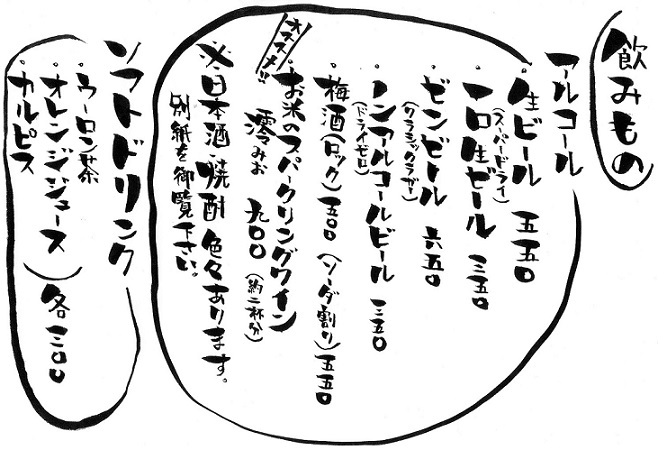 飲みもの
アルコール
・生ビール 五五〇
(スーパードライ)
・一口生ビール 三五〇
・ビンビール 六五〇
(クラシックラガー)
・ノンアルコールビール 三五〇
(ドライゼロ)
・梅酒(ロック)五〇〇(ソーダ割り)五五〇
オススメ!!
・お米のスパークリングワイン
澪みお 九〇〇(約二杯分)
※日本酒 焼酎 色々あります。
別紙を御覧下さい。
ソフトドリンク
・ウーロン茶
・オレンジジュース
・カルピス
各三〇〇